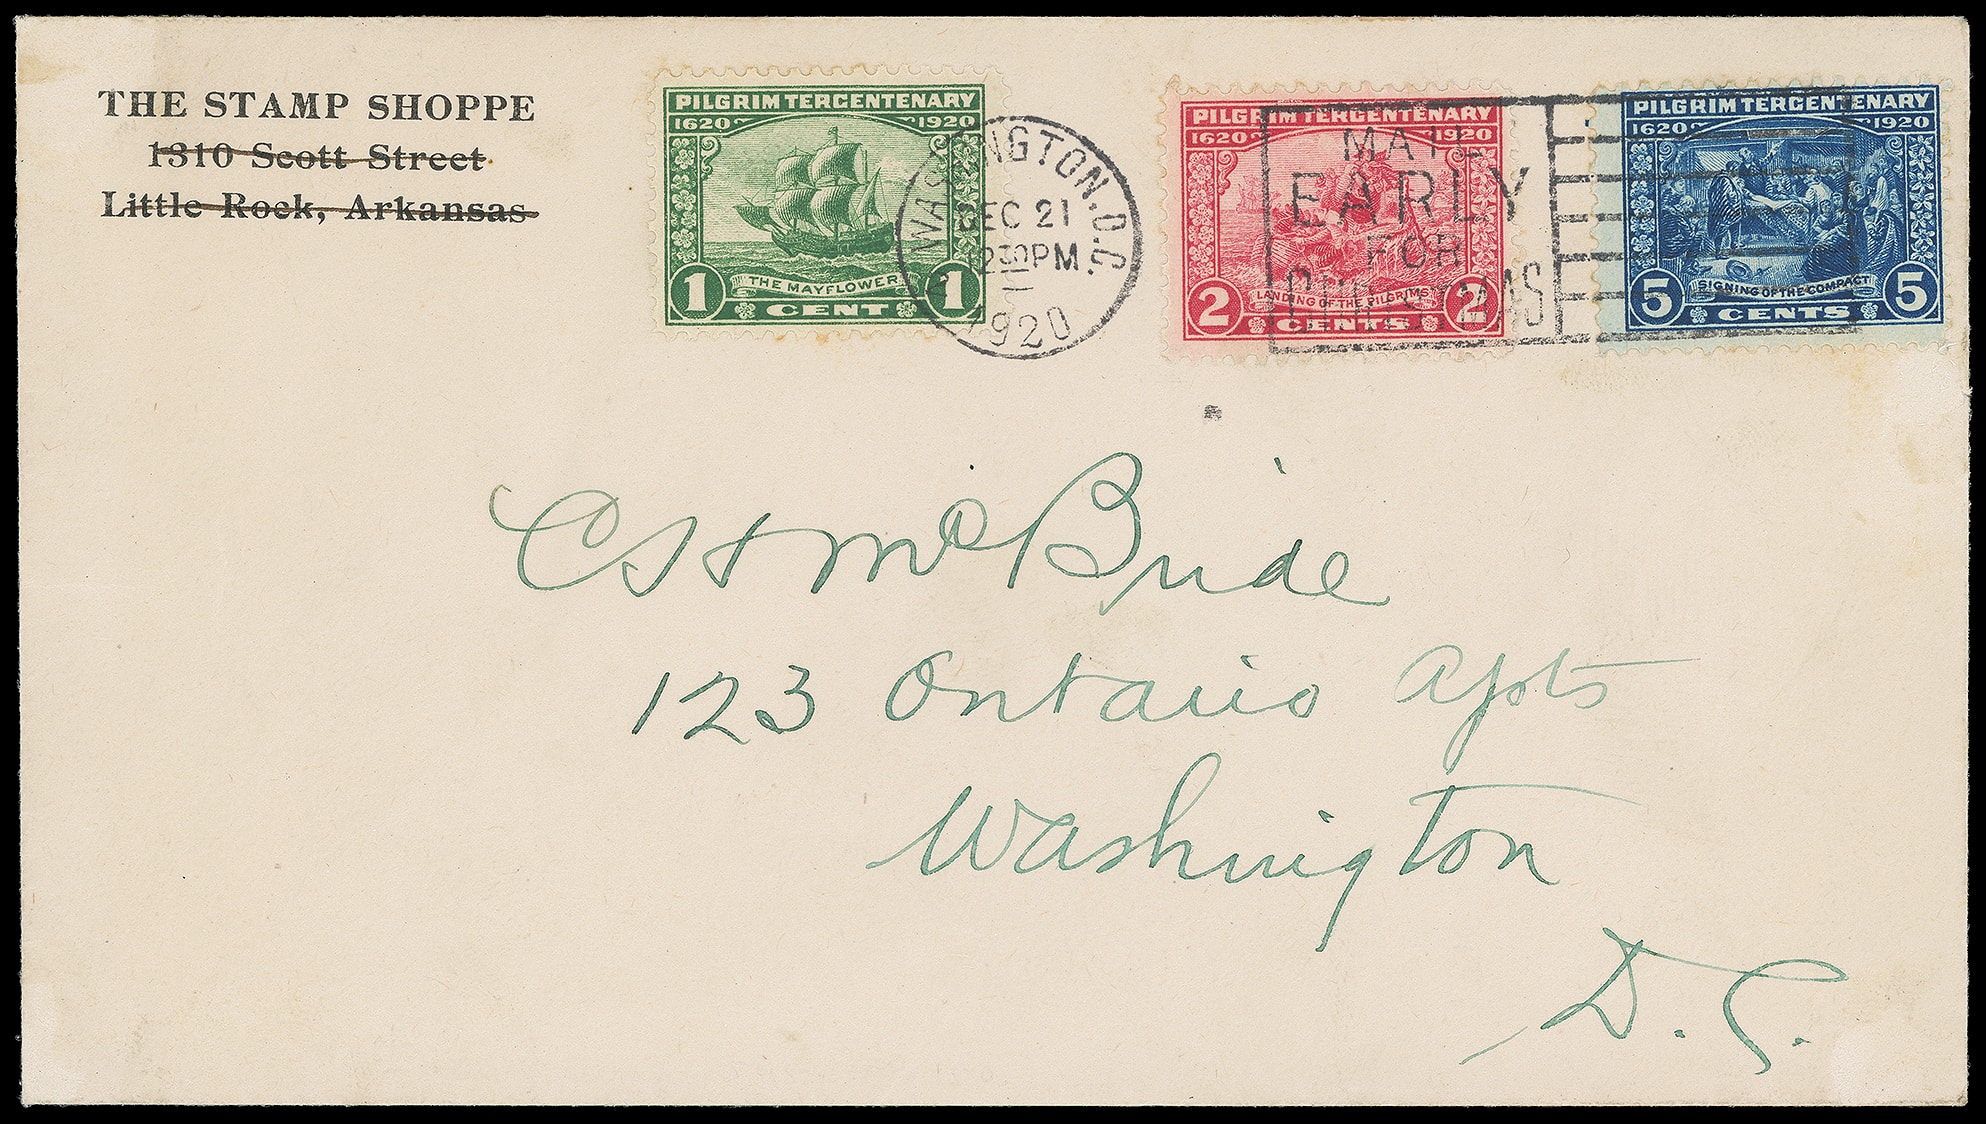 THE STAMP SHOPPE
1310 Scott Street
Little Rock, Arkansas
PILGRIM TERCENTENARY
1620 1920
THE MAYFLOWER
1 CENT 1
WASHINGTON, D.C.
DEC 21
230 PM
1920
PILGRIM TERCENTENARY
1620 1920
LANDING OF THE PILGRIMS
2 CENTS 2
MAIL
EARLY
FOR
CHRISTMAS
PILGRIM TERCENTENARY
1620 1920
SIGNING OF THE COMPACT
5 CENTS 5
McBride
123 Ontario Apts
Washington
D.C.